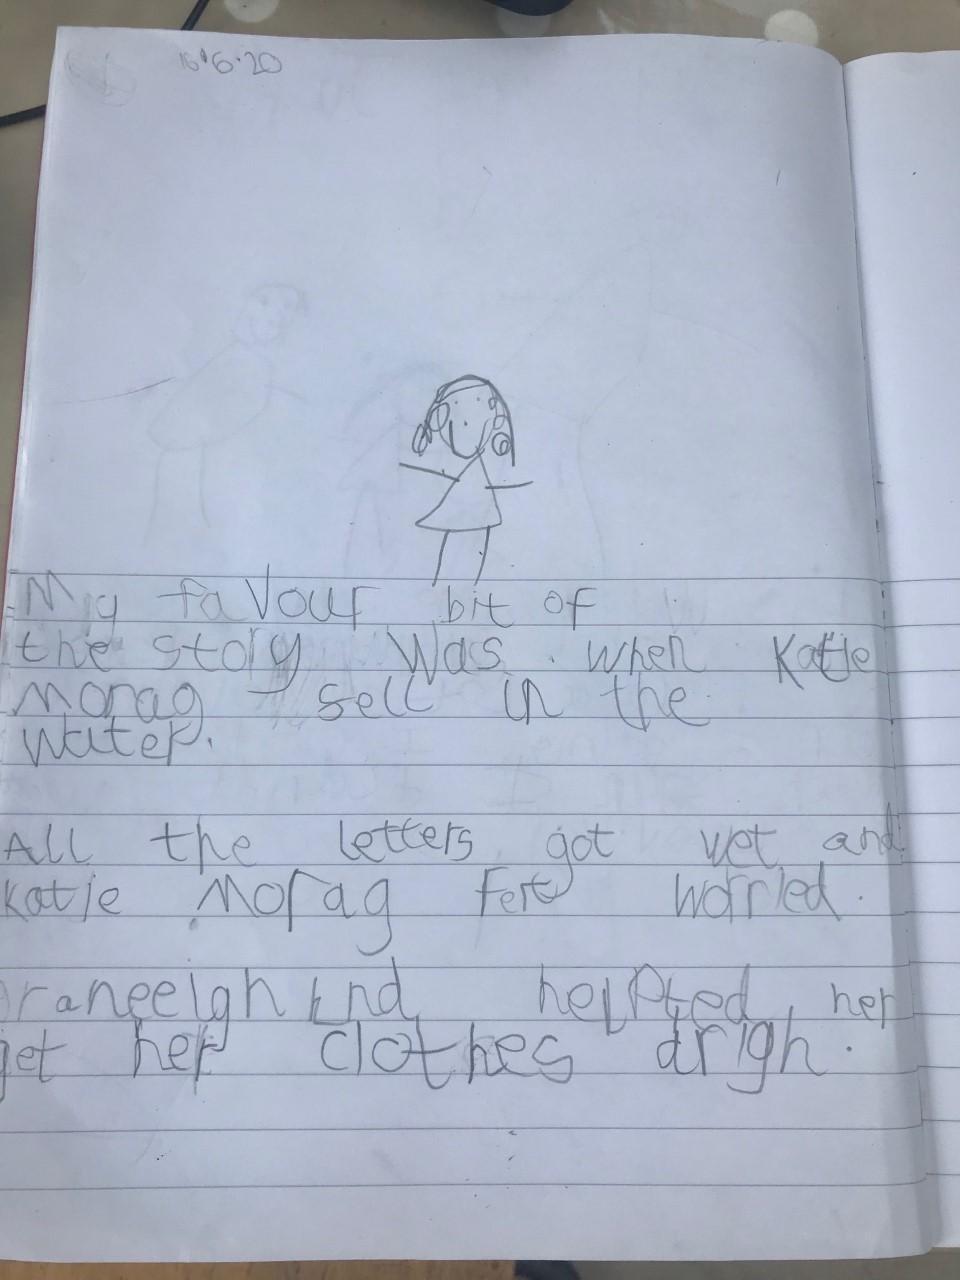 16.6.20
My favour bit of
the story was. when Katie
Morag sell in the
water.
All the letters got wet and
Katie Morag felt worried.
raneeigh Ind helpted her
get her clothes drigh.